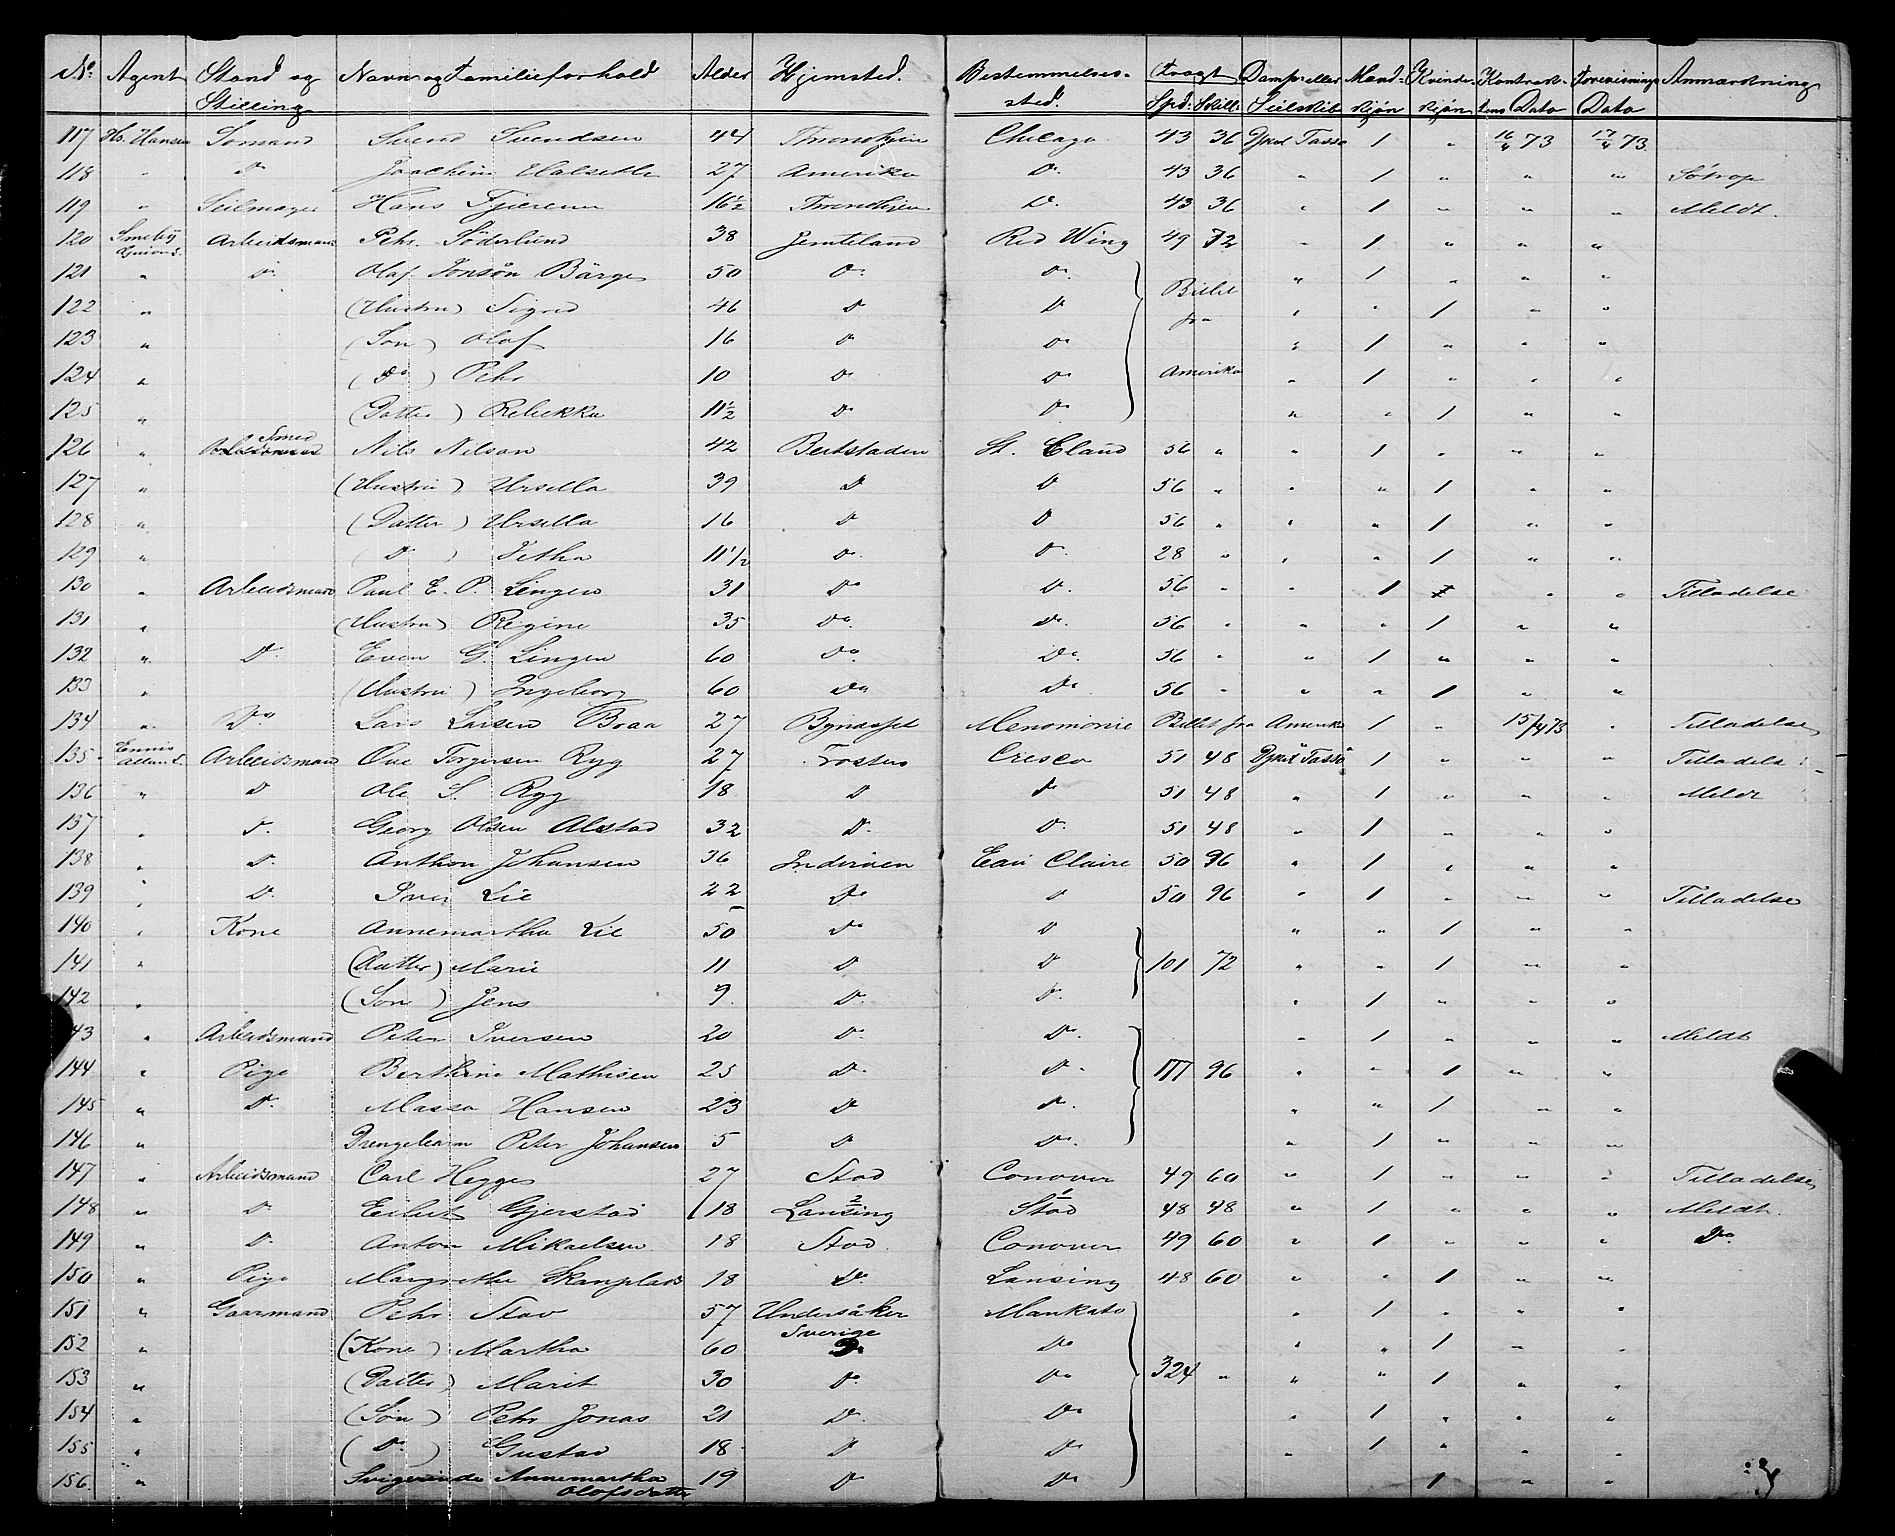 No. Agent Stand og Stilling Navn og Familieforhold Alder Hjemsted. Bestemmelses-sted. Fragt Spd. Skill. Damp eller Seilskib Mand-kjøn Kvinde-kjøn Kontrak-tens Dato Forevisnings Dato Anmærkning
117 Hs. Hansen Sømand Svend Svendsen 44 Throndhjem Chicago 43 36 Dpsk Tasso 1 " 16/4 73 17/4 73
118 " Do Joachim Halseth 27 Amerika Do. 43 36 " 1 " " " Søtrop
119 " Seilmager Hans Fjierem 16½ Throndhjem Do. 43 36 " 1 " " " Meldt.
120 Smeby Arbeidsmand Pehr. Söderlund 38 Jemteland Red Wing 49 72 " 1 " " "
121 " Do Olaf Jonsøn Bärge 50 Do. Do. Billet " 1 " " "
122 " (Hustru) Sigrid 46 Do Do fra " " 1 " "
123 " (Søn) Olof 16 Do Do " 1 " " "
124 " (Do) Pehr 10 Do Do Amerika " 1 " " "
125 " (Datter) Rebekka 11½ Do Do " " 1 " "
126 " Smed Nils Nilson 42 Beitstaden St. Cloud 56 " " 1 " " "
127 " (Hustru) Ursella 39 Do Do 56 " " " 1 " "
128 " (Datter) Ursella 16 Do Do 56 " " " 1 " "
129 " (Do) Jetha 11½ Do. Do. 28 " " " 1 " "
130 " Arbeidsmand Paul E. P. Lingen 31 Do Do. 56 " " 1 " " Tilladelse
131 " (Hustru) Regine 35 Do. Do. 56 " " " 1 " "
132 " Do. Even G. Lingen 60 Do. Do. 56 " " 1 " " "
133 " (Hustru) Ingeborg 60 Do Do 56 " " " 1 " "
134 " Do Lars Larsen Braa 27 Bynesset Menomonie Billet fra Amerika 1 " 15/4 73 " Tilladelse
135 Ennis Allan L. Arbeidsmand Ove Torgersen Ryg 27 Frosten Cresco 51 48 Dpsk Tasso 1 " " " Tilladelse
136 " Do Ole S. Ryg 18 Do Do 51 48 " 1 " " " Meldt
137 " Do. Georg Olsen Alstad 32 Do. Do. 51 48 " 1 " " "
138 " Do. Anthon Johansen 36 Inderøen Eau Claire 50 96 " 1 " " "
139 " Do. Iver Lie 22 Do Do 50 96 " 1 " " " Tilladelse
140 " Kone Annemartha Lie 50 Do Do " " 1 " "
141 " (Datter) Marie 11 Do Do 101 72 " " 1 " "
142 " (Søn) Jens 9. Do. Do. " 1 " " "
43 " Arbeidsmand Peter Iversen 20 Do. Do. " 1 " " " Meldt
144 " Pige Berthine Mathisen 25 Do. Do. 177 96 " " 1 " "
145 " Do. Massa Hansen 23 Do Do. " " 1 " "
146 " Drengebarn Peter Johansen 5 Do Do. " 1 " " "
147 " Arbeidsmand Carl Hegge 27 Stod Conover 49 60 " 1 " " " Tilladelse
148 " Do Eilert Gjerstad 18 Lansing Stod 48 48 " 1 " " " Meldt.
149 " Do. Anton Mikaelsen 18 Stod. Conover 49 60 " 1 " " " Do.
150 " Pige Margrethe 18 Do. Lansing 48 60 " " 1 " "
151 " Gaarmand Pehr Stav 57 Undersåker Sverige Mankato " 1 " " "
152 " (Kone) Martha 60 Do Do " " 1 " "
153 " (Datter) Marit 30 Do. Do 324 " " " 1 " "
154 " (Søn) Pehr Jonas 21 Do. Do " 1 " " "
155 " (Do) Gustav 18 Do Do " 1 " " "
156. " Svigerinde Annemartha Olofsdatter 19 Do Do 1 " "